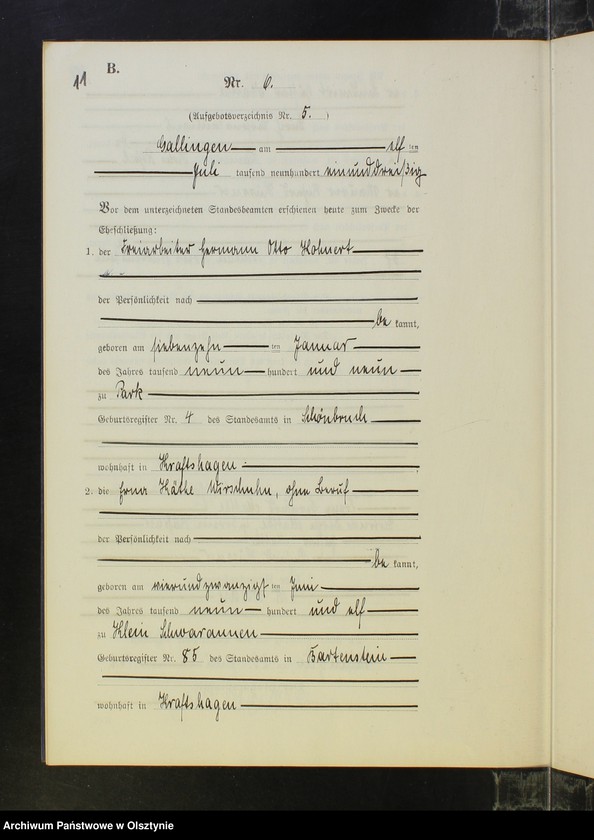 11
B.
Nr. 6.
(Aufgebotsverzeichnis Nr. 5.)
Gallingen am elf ten
Juli tausend neunhundert einunddreißig
Vor dem unterzeichneten Standesbeamten erschienen heute zum Zwecke der
Eheschließung:
1. der Freiarbeiter Hermann Otto Hohnert
der Persönlichkeit nach
be kannt,
geboren am siebenzehn ten Januar
des Jahres tausend neun hundert und neun
zu Park
Geburtsregister Nr. 4 des Standesamts in Schönbruch
wohnhaft in Kraftshagen
2. die Erna Käthe Wirschuhn, ohne Beruf
der Persönlichkeit nach
be kannt,
geboren am vierundzwanzigst ten Juni
des Jahres tausend neun hundert und elf
zu Klein Schwaraunen
Geburtsregister Nr. 85 des Standesamts in Bartenstein
wohnhaft in Kraftshagen
Archiwum Państwowe w Olsztynie